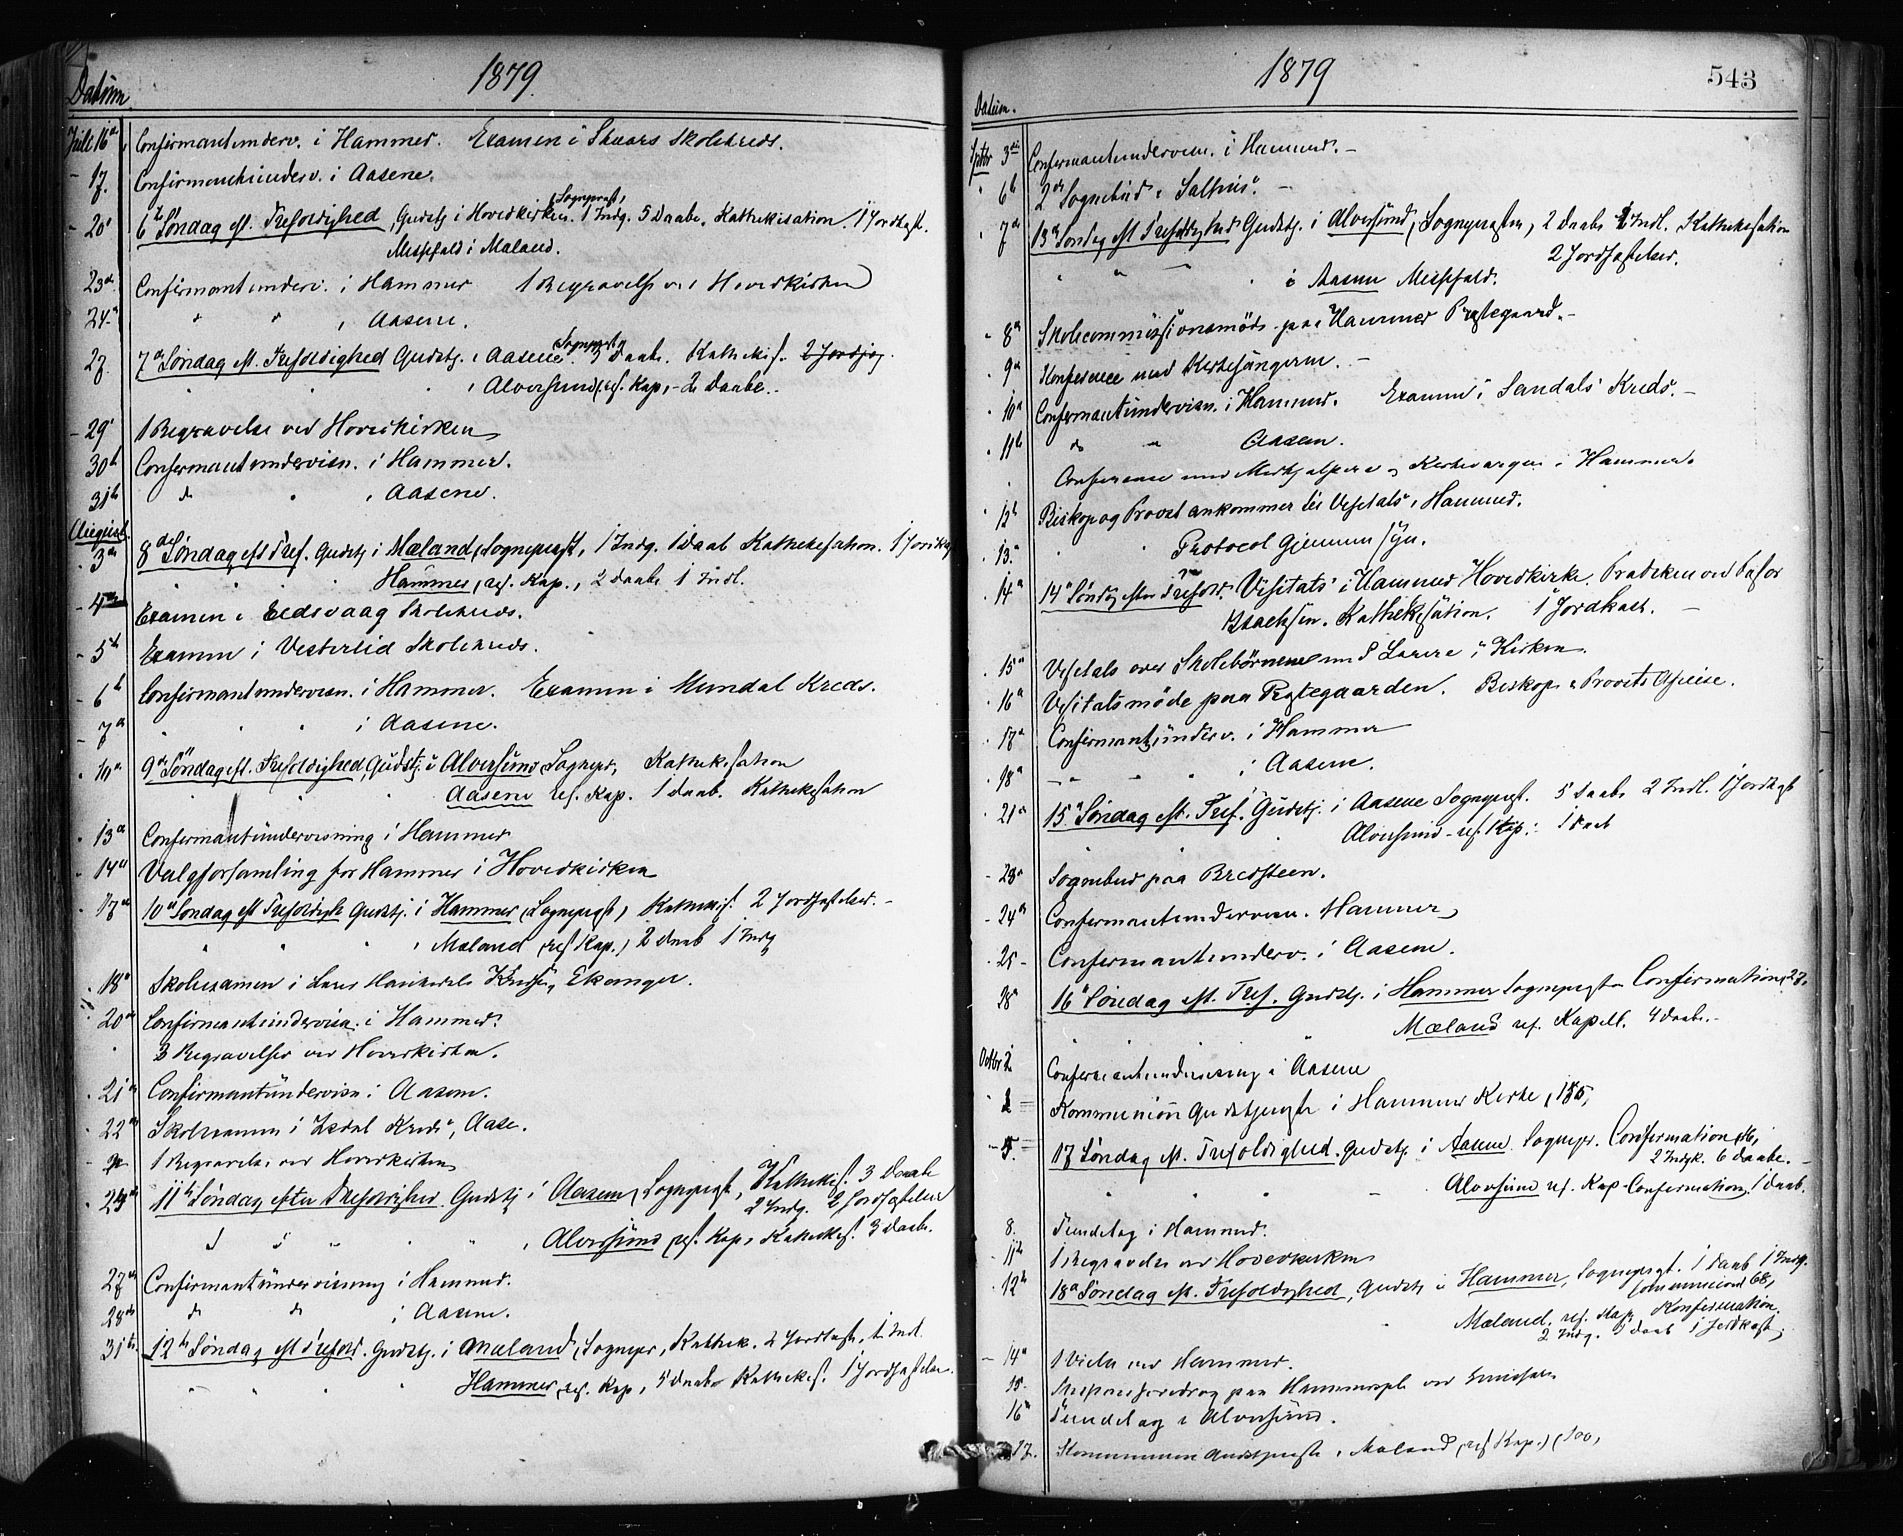 1879.
Datum.
Juli 16de Confirmantunderv. i Hammer. Examen i Skaars Skolekreds.
- 17. Confirmantunderv. i Aasene.
- 20d 6te Søndag eft. Trefoldighed, Gudstj. i Hovedkirken. (Sognepræst) 1 Indg. 5 Daabe. Kathekisation. 1 Jordkast.
Messefald i Mæland.
23de Confirmantunderv. i Hammer 1 Begravelse ved Hovedkirken
24. " " i Aasene.
27. 7de Søndag eft. Trefoldighed Gudstj. i Aasene. Sognepræst 3 Daabe. Kathekis. 2 Jordp
" " i Alversund, res. Kap, - 2 Daabe.
- 29d 1 Begravelse ved Hovedkirken
30te Confirmantundervisn. i Hammer.
31te do " i Aasene.
August
3de 8de Søndag eft Tref. Gudstj i Mæland, Sognepræst, 1 Indg. 1 Daab Kathekisation. 1 Jordka
Hammer, res. Kap., 2 Daabe 1 Indl.
- 4 Examen i Eedsvaag Skolekreds.
- 5te Examen i Vesterlid Skolekreds.
- 6te Confirmantundervisn. i Hammer. Examen i Mundal Kreds.
- 7de " " i Aasene.
10de 9de Søndag eft. Trefoldighed, Gudstj. i Alversund, Sognepr, Kathekisation
Aasene res. Kap. 1 Daab. Kathekisation
13de Confirmantundervisning i Hammer
14de Valgforsamling for Hammer i Hovedkirken
17de 10de Søndag eft Trefoldigh Gudstj. i Hammer, Sognepræst, Kathekis. 2 Jordfæstelser. -
" " i Mæland, res Kap., 2 Daab 1 Indg
18d Skoleexamen i Ekanger.
20de Confirmantundervisn. i Hammer.
3 Begravelser ved Hovedkirken.
21de Confirmantundervisn i Aasene.
22de Skoleexamen i Isdal Kreds, Aase.
1 Begravelse ved Hovedkirken
24de 11te Søndag efter Trefoldighed. Gudstj i Aasene, Sognepræst, Kathekis. 3 Daabe
2 Indg. 2 Jordfæstelser
" " i Alversund, res. Kap, Kathekis. 3 Daabe.
27de Confirmantundervisning i Hammer.
28de do do i Aasene.
31te 12te Søndag eft Trefold. Gudstj. i Mæland, Sognepr, Kathek. 2 Jordkast, 1 Indl.
Hammer, res. Kap, 5 Daabe Kathekis. 1 Jordfæstelse.
1879
543
Datum.
Sptbr 3die Confirmantundervisn. i Hammer. -
6te 2de Sognebud i Salhus. -
7de 13de Søndag eft Trefoldighed Gudstj. i Alversund, Sognepræsten, 2 Daabe 1 Indl. Kathekisation
2 Jordfæstelser.
" " i Aasene Messefald.
8de Skolecommissionsmøde paa Hammer Præstegaard. -
9de Konference med Kirkesangerne. -
10de Confirmantundervisn. i Hammer. Examen i Sandals Kreds. -
11te do " Aasene.
Conference med Medhjælpere og Kirkeværgen i Hammer.
12te Biskop og Provst ankommer til Visitats i Hammer.
13. Protocol Gjennemsyn.
14de 14de Søndag efter Trefold. Visitats i Hammer Hovedkirke. Prædiken ved Pastor
Isachsen. Kathekisation. 1 Jordkast. -
15de Visitats over Skolebørnene med Lærere i Kirken.
16de Visitatsmøde paa Præstegaarden. Biskops & Provsts Afreise.
17de Confirmantunderv. i Hammer
18de " " " i Aasene.
21de 15de Søndag eft. Tref. Gudstj. i Aasene Sognepræst. 5 Daabe 2 Indl. 1 Jordkast
Alversund - res. Kap: 1 Daab
- 23d Sognebud paa Bredsteen.
- 24de Confirmantundervisn. Hammer,
- 25 - Confirmantunderv. i Aasene.
28 16de Søndag eft. Tref. Gudstj. i Hammer Sognepræsten Confirmation, 27.
Mæland res. Kapell. 4 Daabe. -
Octbr 2 Confirmantundervisning i Aasene
Kommunion Gudstjeneste i Hammer Kirke, 185,
- 5. 17 Søndag eft. Trefoldighed. Gudstj. i Aasene. Sognepr. Confirmation
2 Indgk. 6 Daabe. -
Alversund res. Kap. Confirmation, 1 Daab.
8. Tiendetag i Hammer.
11te 1 Begravelse ved Hovedkirken
12te 18de Søndag eft. Trefoldighed, Gudstj i Hammer, Sognepræst. 1 Daab 1 Indg.
Communion 68,
Mæland, res. Kap, Konfirmation.
2 Indg. Daab 1 Jordkast,
- 14de 1 Vielse ved Hammer.
15. Missionsforedrag paa Hammer ved
16de Tiendetag i Alversund.
17. Kommunion Gudstjeneste i Mæland, (res Kap.) (100,